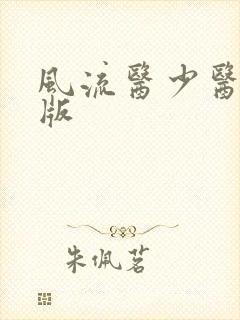 風流醫少醫
版
朱佩茗